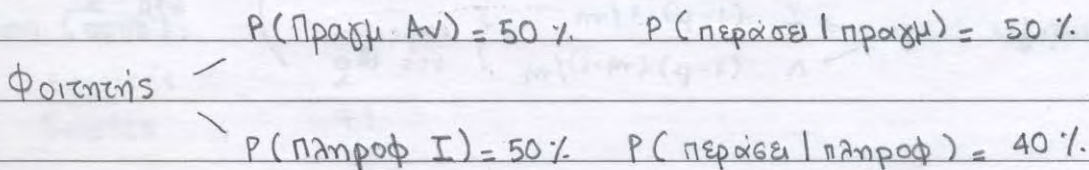 P(Πραγμ. Αν) = 50 % P(περάσει | πραγμ) = 50 %
Φοιτητής
P(πληροφ I) = 50 % P(περάσει | πληροφ) = 40 %